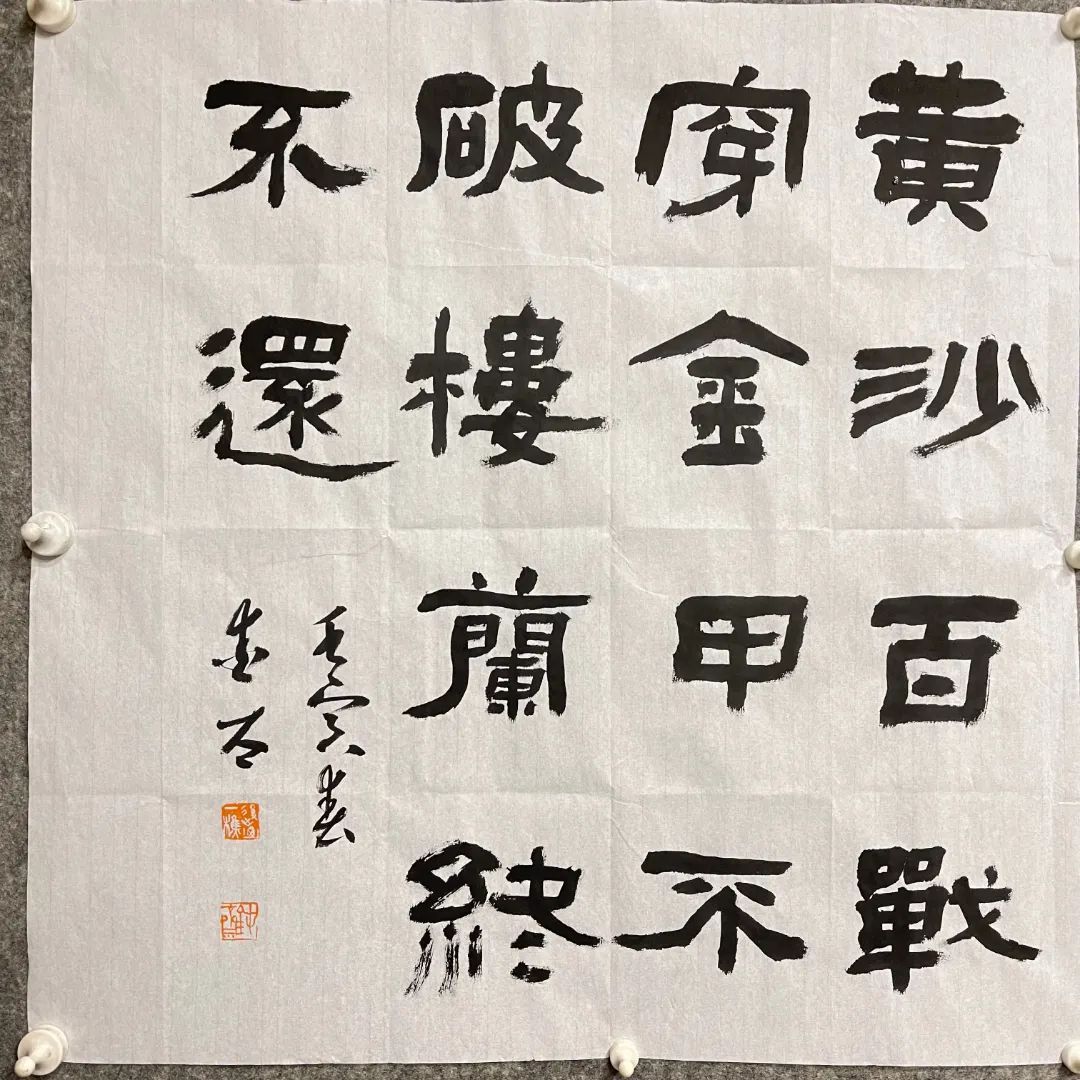 黄沙百戰
穿金甲不
破樓蘭終
不還
壬寅春